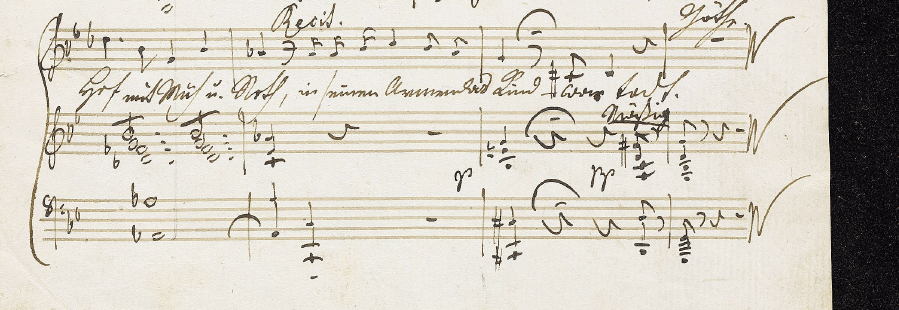 Recit. Göthe.
Hof mit Müh u. Noth, in seinen Armen das Kind war todt.
pp